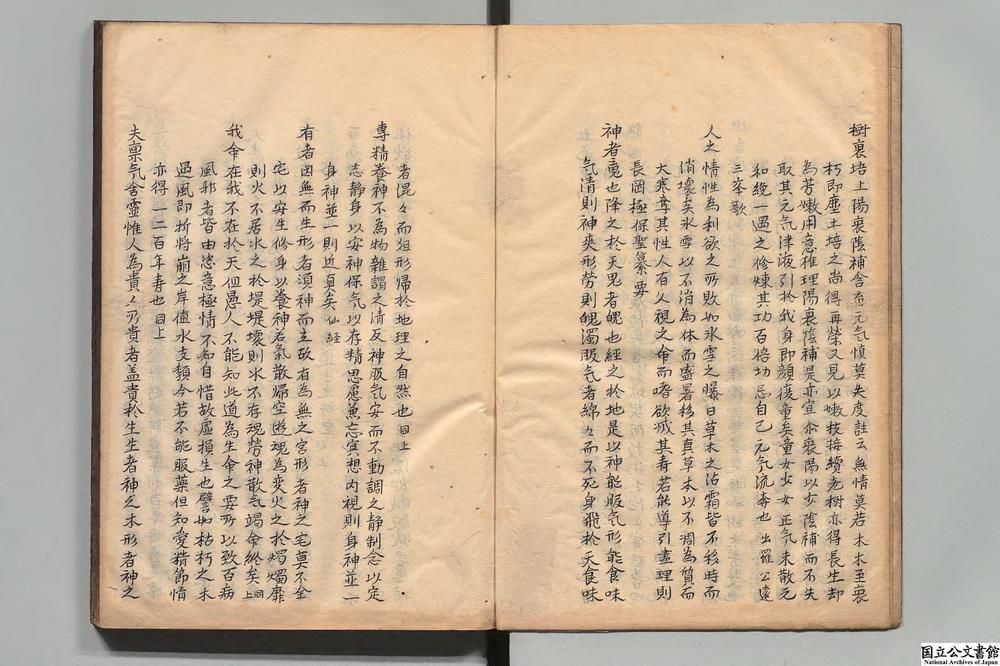 樹裏培土陽裏陰補含育元气慎莫失度註云無情莫若木木至衰
朽即塵土培之尚得再榮又見以嫩枝接續老樹亦得長生却
為芳嫩用意推理陽衰陰補是亦宜尒衰陽以少陰補而不失
取其元气津液引於我身即顏復童矣童女少女正气未散元
和純一遇之修煉其功百倍切忌自己元气流奔也 出羅公遠
三峯歌
人之情性為利欲之所敗如氷雪之曝日草木之沾霜皆不移時而
消壞矣氷雪以不消為体而盛暑移其真草木以不凋為質而
大寒奪其性人有久視之命而嗜欲滅其寿若能導引尽理則
長固極保聖纂要
神者䰟也降之於天鬼者魄也経之於地是以神能服气形能食味
气清則神爽形劳則魄濁服气者綿々而不死身飛於天食味
者混々而殂形帰於地理之自然也 同上
專精養神不為物雑謂之清反神服气安而不動謂之静制念以定
志静身以安神保气以存精思慮兼忘冥想内視則身神並一
身神並一則近真矣 仙経
有者因無而生形者須神而立故有為無之宮形者神之宅莫不全
宅以安生修身以養神若气散帰空遊魂為変火之於燭燭靡
則火不居水之於堤堤壊則水不存魂劳神散气竭命終矣 同上
我命在我不在於天但愚人不能知此道為生命之要所以致百病
風邪者皆由恣意極情不知自惜故虚損生也譬如枯朽之木
遇風即折将崩之岸值水先頽今若不能服薬但知愛精節情
亦得一二百年寿也 同上
夫禀气含霊惟人為貴人所貴者盖貴於生生者神之本形者神之
国立公文書館
National Archives of Japan